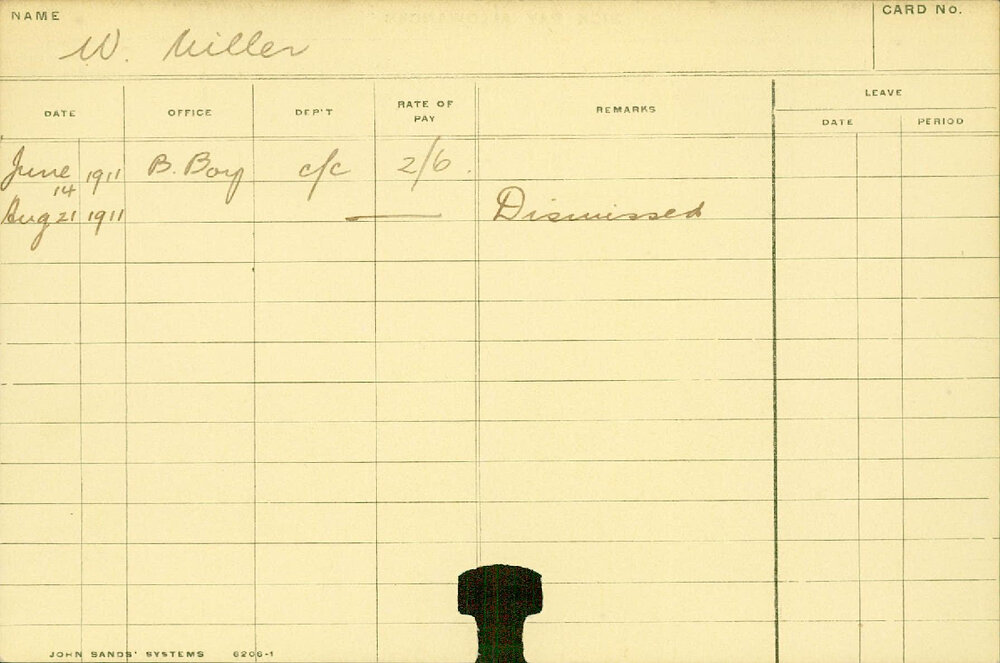 NAME
CARD No.
W. Miller
DATE OFFICE DEP'T RATE OF PAY REMARKS LEAVE
DATE PERIOD
June 14 1911 B. Boy c/c 2/6.
Aug 21 1911 — Dismissed
JOHN SANDS' SYSTEMS 6206-1